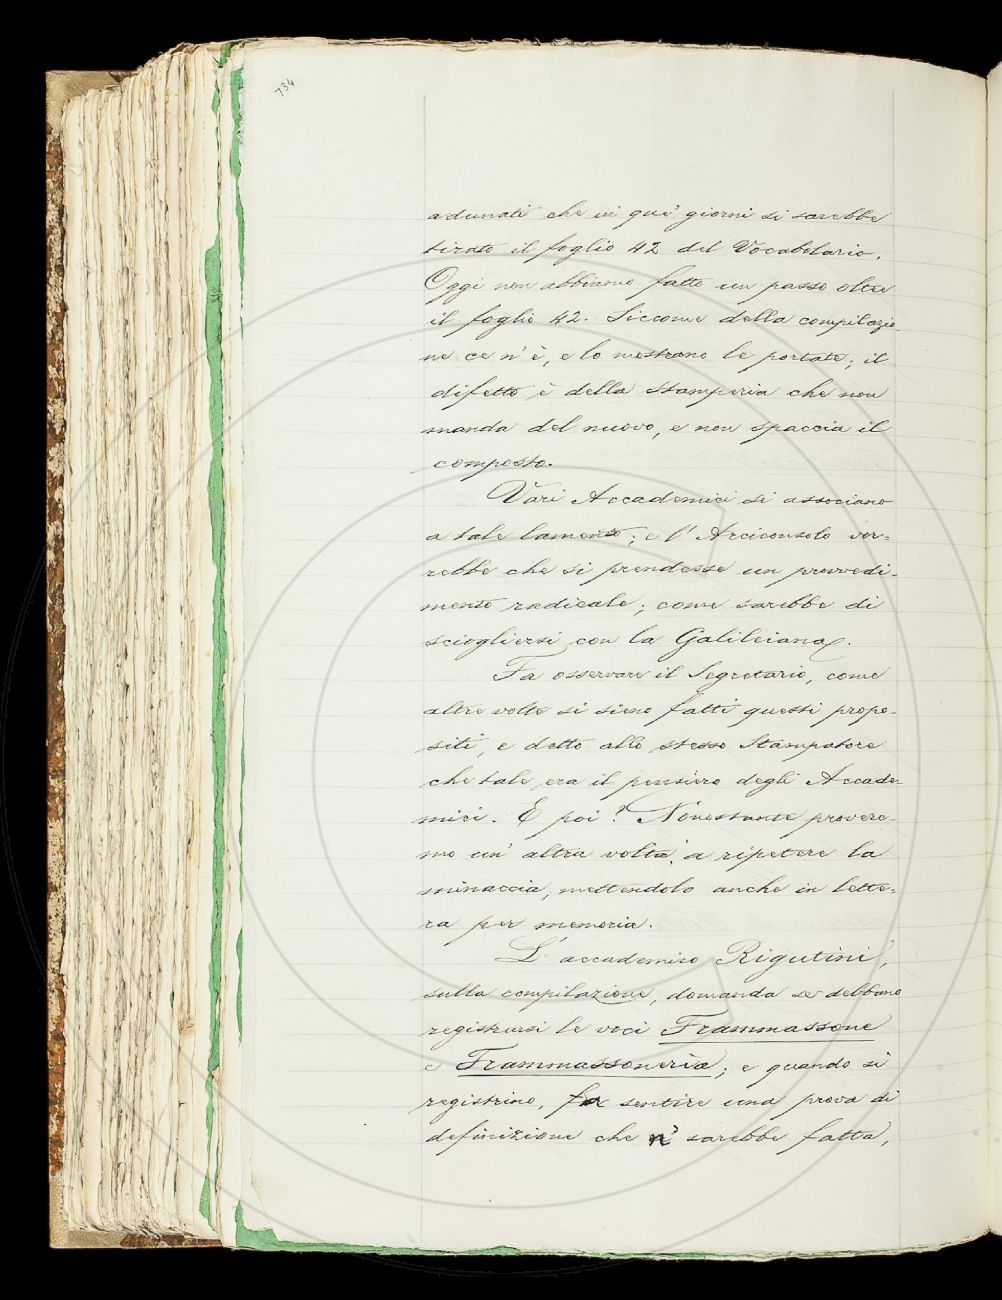 734
adunati che in que' giorni si sarebbe
tirato il foglio 42 del Vocabolario.
Oggi non abbiamo fatto un passo oltre
il foglio 42. Siccome della compilazio-
ne ce n'è, e lo mostrano le portate; il
difetto è della stamperia che non
manda del nuovo, e non spaccia il
composto.
Vari Accademici si associano
a tale lamento; e l'Arciconsolo vor=
rebbe che si prendesse un provvedi-
mento radicale; come sarebbe di
sciogliersi con la Galileiana.
Fa osservare il Segretario, come
altre volte si sieno fatti questi propo-
siti, e detto allo stesso Stampatore
che tale era il pensiero degli Accade-
mici. E poi? Nonostante provere-
mo un'altra volta a ripetere la
minaccia, mettendolo anche in lette=
ra per memoria.
L'accademico Rigutini,
sulla compilazione, domanda se debbano
registrarsi le voci Frammassone
e Frammassoneria; e quando si
registrino, fa sentire una prova di
definizione che n'sarebbe fatta,